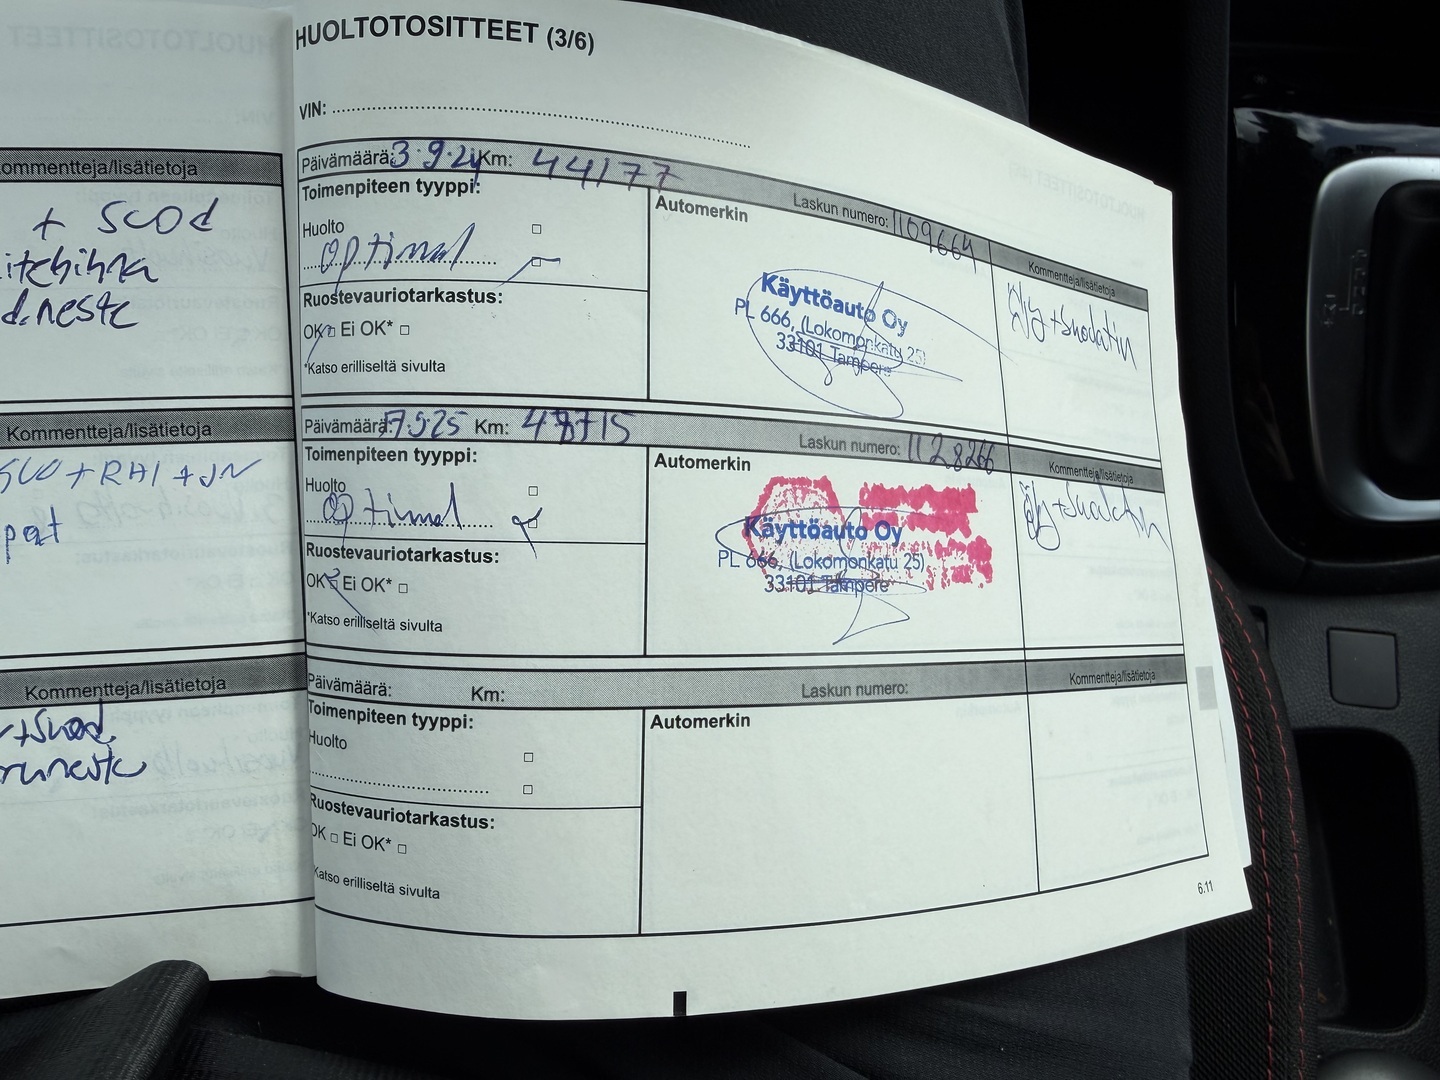 Kommentteja/lisätietoja
+ scod
d.neste
Kommentteja/lisätietoja
+ RAI + JN
Kommentteja/lisätietoja
HUOLTOTOSITTEET (3/6)
VIN:
Päivämäärä: 3.9.24 Km: 44177
Laskun numero: 1109664
Kommentteja/lisätietoja
Toimenpiteen tyyppi:
Huolto
Optimal
Ruostevauriotarkastus:
OK Ei OK*
*Katso erilliseltä sivulta
Automerkin
Käyttöauto Oy
PL 666, (Lokomonkatu 25)
33101 Tampere
Öljy + suodatin
Päivämäärä: 7.5.25 Km: 48715
Laskun numero: 1128266
Kommentteja/lisätietoja
Toimenpiteen tyyppi:
Huolto
Optimal
Ruostevauriotarkastus:
OK Ei OK*
*Katso erilliseltä sivulta
Automerkin
Käyttöauto Oy
PL 666, (Lokomonkatu 25)
33101 Tampere
Öljy + suodatin
Päivämäärä: Km:
Laskun numero:
Kommentteja/lisätietoja
Toimenpiteen tyyppi:
Huolto
Ruostevauriotarkastus:
OK Ei OK*
Katso erilliseltä sivulta
Automerkin
6.11